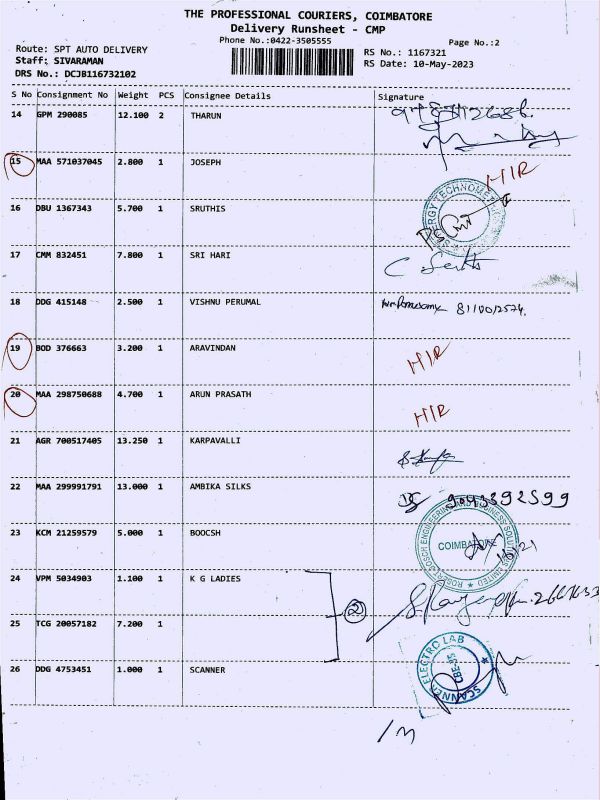 THE PROFESSIONAL COURIERS, COIMBATORE
Delivery Runsheet - CMP
Phone No.:0422-3505555
Page No.:2
Route: SPT AUTO DELIVERY
RS No.: 1167321
Staff: SIVARAMAN
RS Date: 10-May-2023
DRS No.: DCJB116732102
S No Consignment No Weight PCS Consignee Details Signature
14 GPM 290085 12.100 2 THARUN
15 MAA 571037045 2.800 1 JOSEPH HIR
16 DBU 1367343 5.700 1 SRUTHIS
17 CMM 832451 7.800 1 SRI HARI
18 DDG 415148 2.500 1 VISHNU PERUMAL
19 BOD 376663 3.200 1 ARAVINDAN HIR
20 MAA 298750688 4.700 1 ARUN PRASATH HIR
21 AGR 700517405 13.250 1 KARPAVALLI
22 MAA 299991791 13.000 1 AMBIKA SILKS 9043392599
23 KCM 21259579 5.000 1 BOOCSH COIMBATORE
24 VPM 5034903 1.100 1 K G LADIES
2
25 TCG 20057182 7.200 1
26 DDG 4753451 1.000 1 SCANNER SCANNER ELECTRO LAB CBE-35